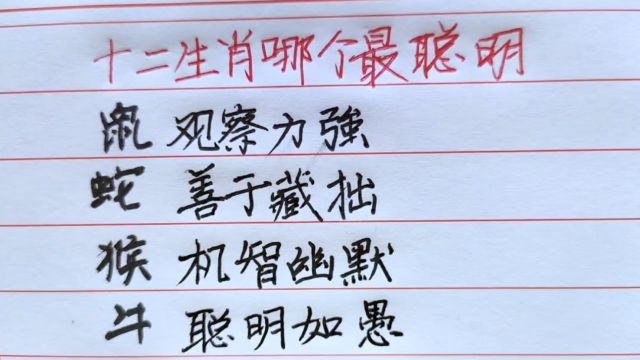 十二生肖哪个最聪明
鼠 观察力強
蛇 善于藏拙
猴 机智幽默
牛 聪明如愚